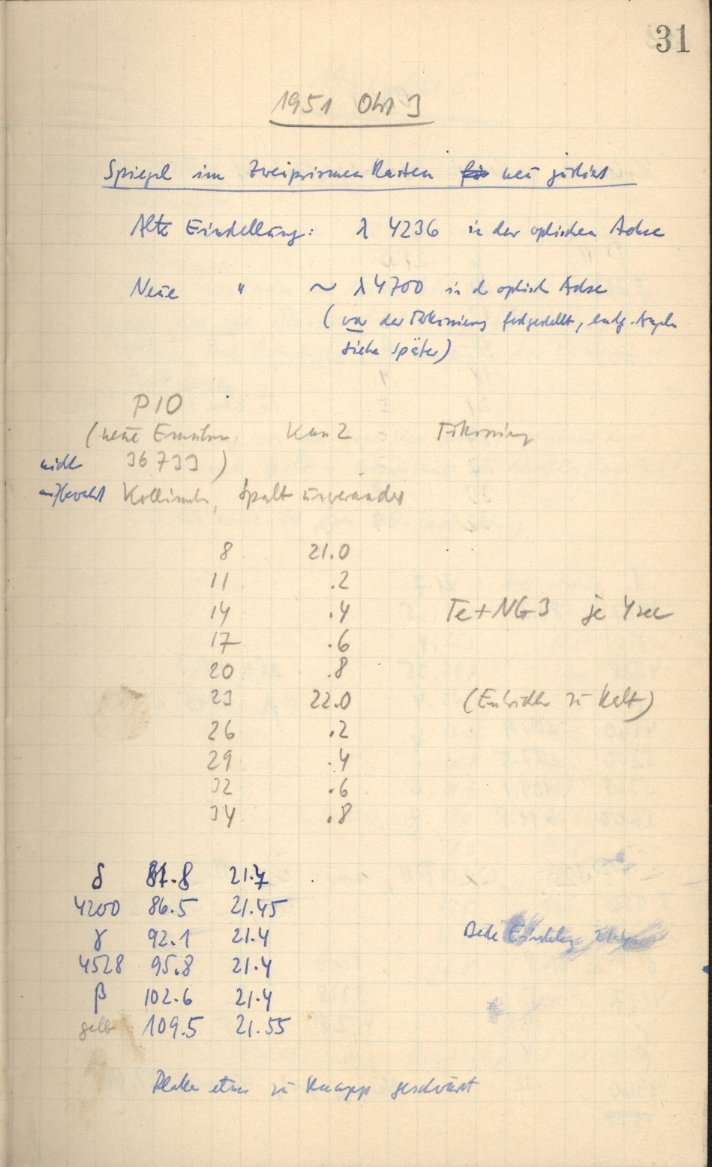 31
1951 Okt 3
Spiegel im Zweiprismenkasten neu justiert
Alte Einstellung: λ 4236 in der optischen Achse
Neue " ~ λ 4700 in d optisch Achse
(vor der Fokussierung festgestellt,
siehe später)
P10
(neue Emulsion Kam 2 Fokussierung
nicht 36733)
aufbewahrt Kollimator, Spalt unverändert
8 21.0
11 .2
14 .4 Te+NG3 je 4sec
17 .6
20 .8
23 22.0 (Entwickler zu kalt)
26 .2
29 .4
32 .6
34 .8
δ 81.8 21.7
4200 86.5 21.45
γ 92.1 21.4 Beste Einstellung
4528 95.8 21.4
β 102.6 21.4
gelb 109.5 21.55
Platte etwas zu knapp geschwärzt